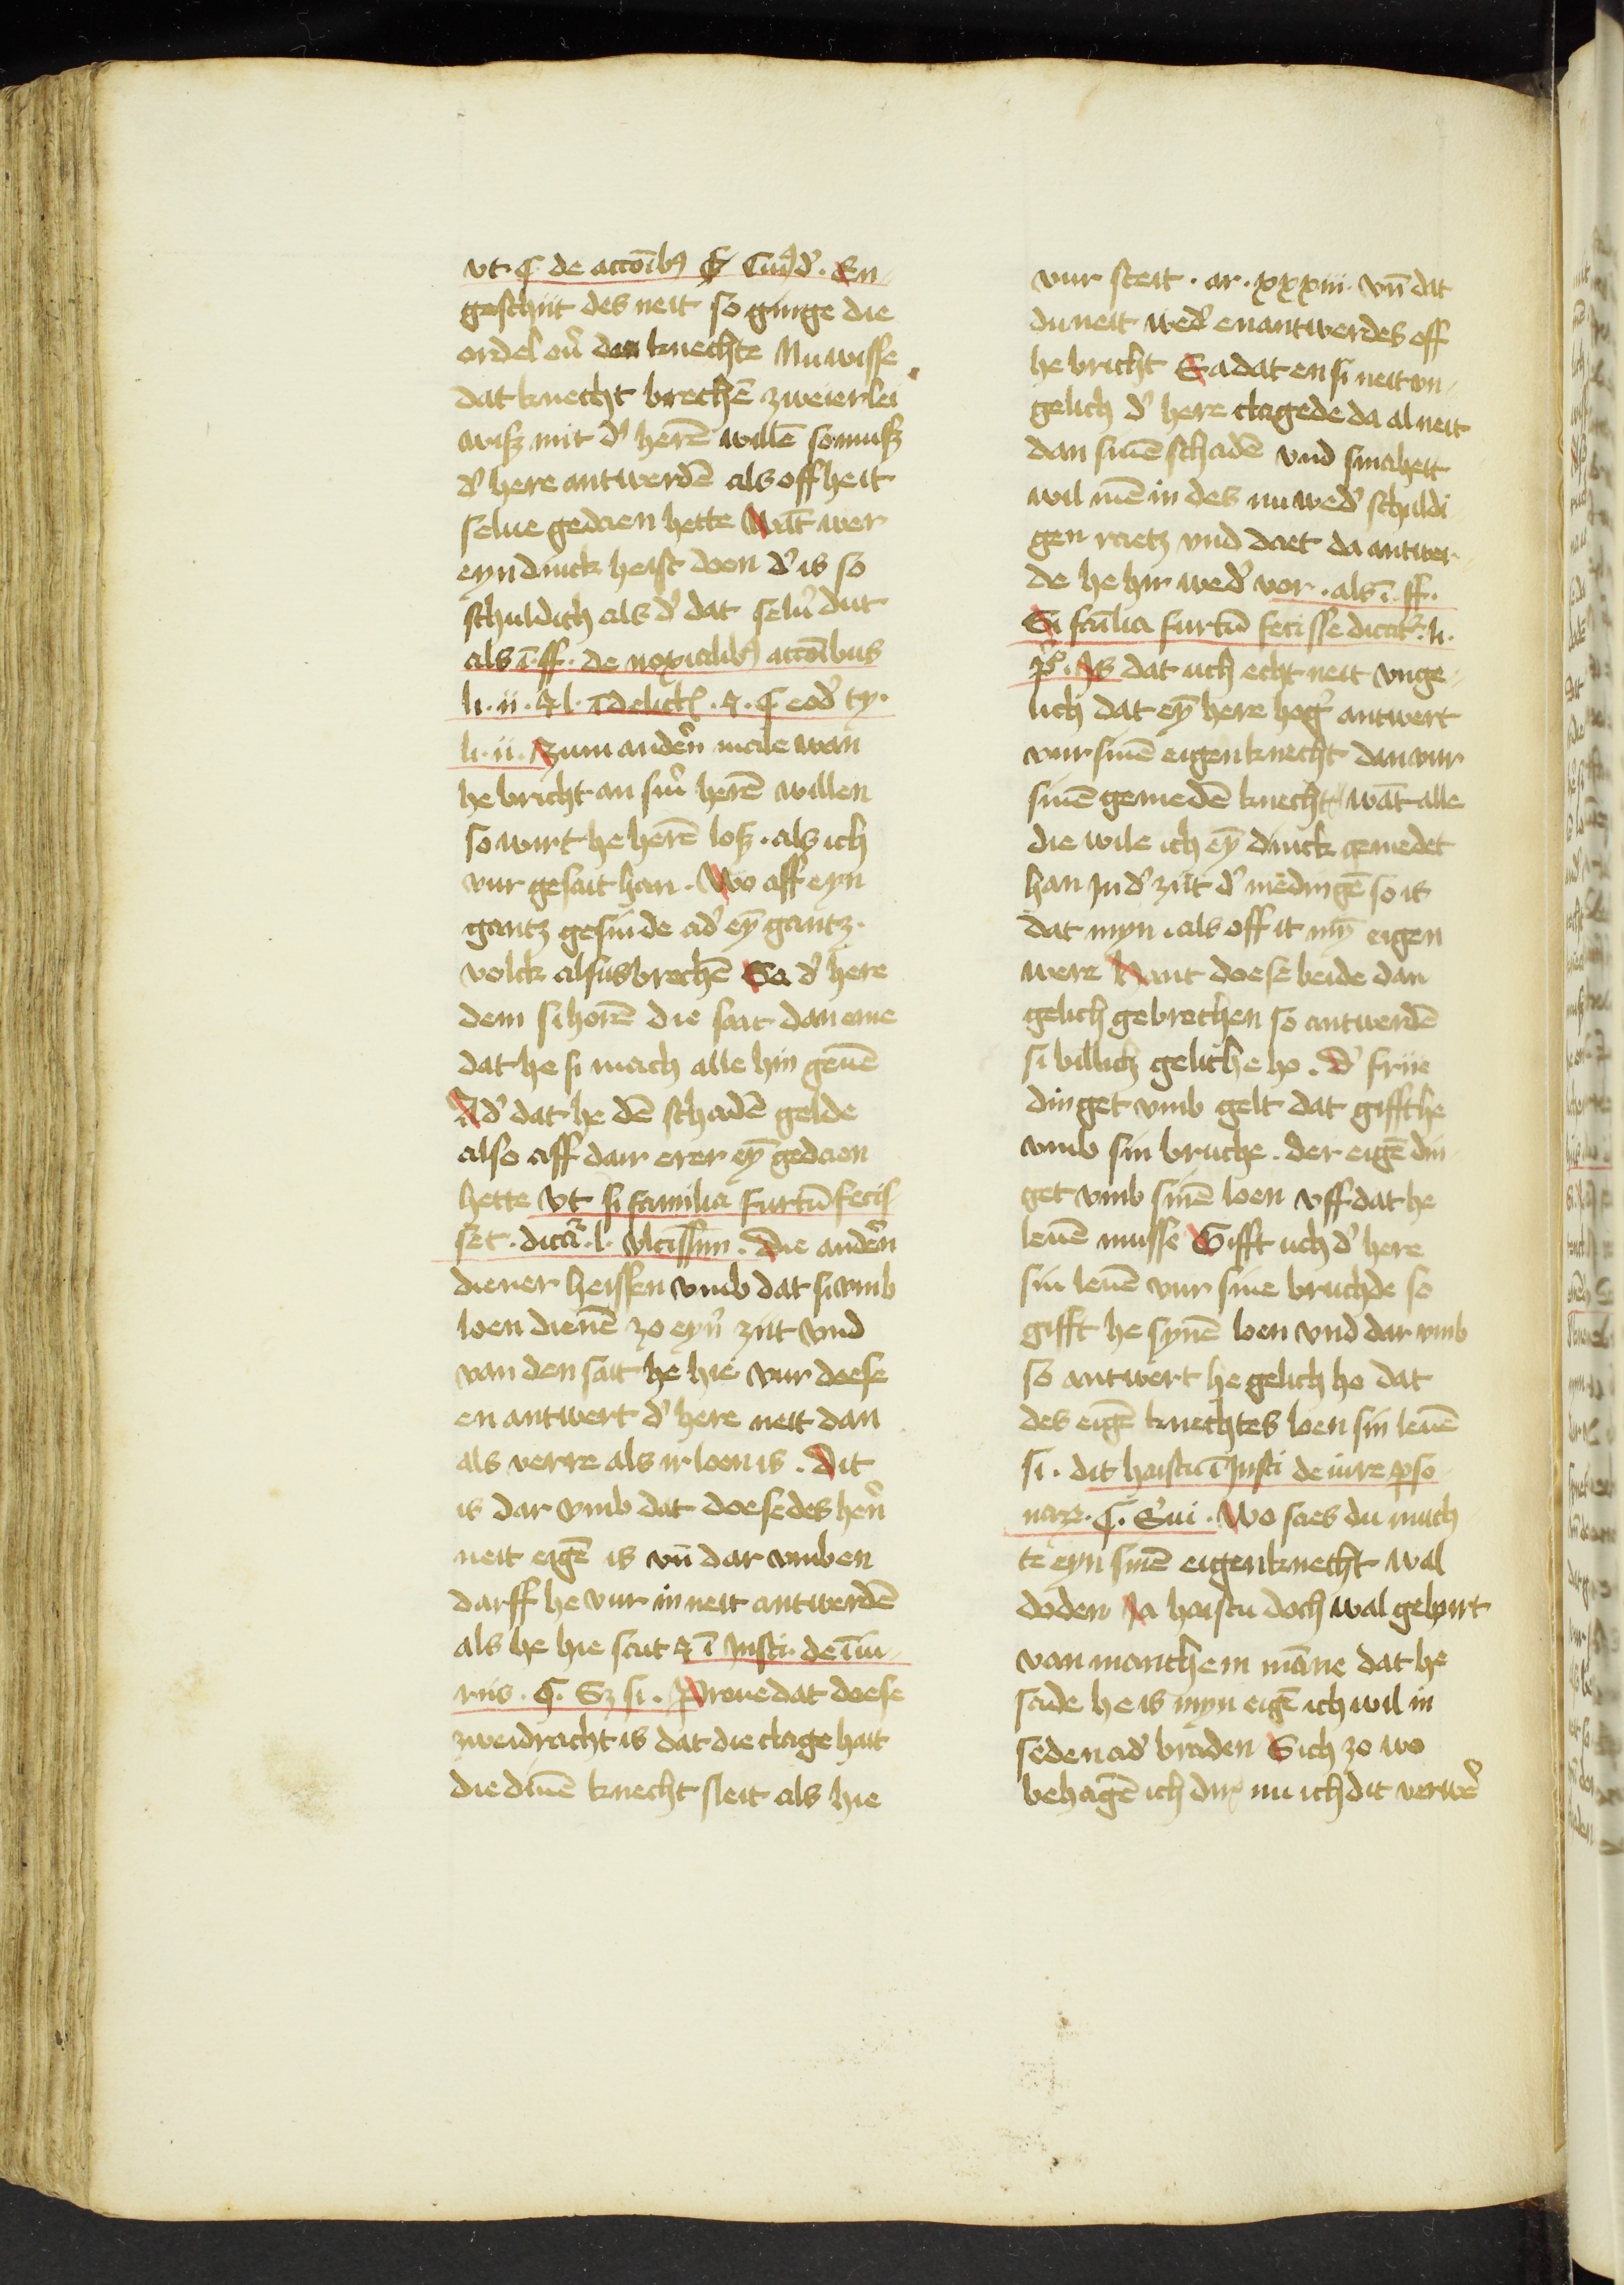 vt. C. de acco̅ibꝰ § Cuiꝰd᷑. En-
geschiit des neit so ginge die
ordel ou᷑ den knechte Nu wisse
dat knecht breche̅ zweierlei
wisz mit d᷑ here̅ wille̅ so musz
d᷑ here antwerde̅ als off he it
selue gedaen hette Wa̅t wer
eyn dinck heist doen d᷑ is so
schuldich als d᷑ dat selu᷑ dut
als i̅. ff. de noxialibꝰ acco̅ibus
li. ii. ⁊ l. i̅ delictꝭ. ⁊. C eod᷑ ty.
li. ii. Zum ander̅n male wan
he bricht an sin᷑ here̅ willen
so wirt he here̅ losz. als ich
vur gesait han. Wo aff eyn
gantz gesinde ad᷑ ey̅ gantz.
volck alsus breche̅ Sa d᷑ here
dem si hore̅ die sait dan eme
dat he si mach alle hin geue̅
Ad᷑ dat he de̅ schade̅ gelde
also aff dair erer ey̅ gedaen
hette Vt si familia furtu̅ fecis-
set. dicat᷑. l. Vltissim. Die ander̅n
diener heissen vmb dat si vmb
loen diene̅ zo eyn᷑ ziit vnd
van den sait he hie vur doese
en antwert d᷑ here neit dan
als verre als ir loen is. Dit
is dar vmb dat doese des her̅n
neit eige̅ is vn̅ dar vmb en
darff he vur in neit antwerde̅
als he hie sait ⁊ i̅ Insti. de i̅iu-
riis. C. Sz si. Proue dat doese
zweidracht is dat die clage hait
die dine̅ knecht sleit als hie
vur steit. ar. xxxiii. vn̅ dat
du neit wed᷑ en antwerdes off
he bricht Sa dat en si neit vn-
gelich d᷑ here clagede da al neit
dan sine̅ schade̅ vnd smaheit
wil me̅ in des nu wed᷑ schuldi
gen raetz vnd daet da antwer-
de he hir wed᷑ vor. als i̅. ff.
Si fa̅ilia furtu̅ fecisse dicat᷑. li.
p᷑o. Is dat uch echt neit vnge-
lich dat ey̅ here hog᷑ antwert
vur sine̅ eigen knecht dan vur
sine̅ gemede̅ knecht / wa̅t alle
die wile ich ey̅ dinck gemedet
han In d᷑ ziit d᷑ medinge̅ so is
dat myn. als off it my̅ eigen
were Hant doese beide dan
gelich gebrechen so antwerde̅
si billich geliche ho. D᷑ friie
dinget vmb gelt dat gifft he
vmb sin bruche. der eige̅ din-
get vmb sine̅ loen vff dat he
leue̅ musse Gifft uch d᷑ here
sin leue̅ vur sine bruchde so
gifft he syne̅ loen vnd dar vmb
so antwert he gelich ho dat
des eige̅ knechtes loen sin leue̅
si. dit haistu i̅ Insti de iure p̲so
naꝝ. C. Sui. Wo saes du much
te eyn sine̅ eigen knecht wal
doden Ja haistu doch wal gehurt
van manchem ma̅ne dat he
sade he is myn eige̅ ich wil in
seden ad᷑ braden Sich zo wo
behage̅ ich dir nu ich dit verwe᷑